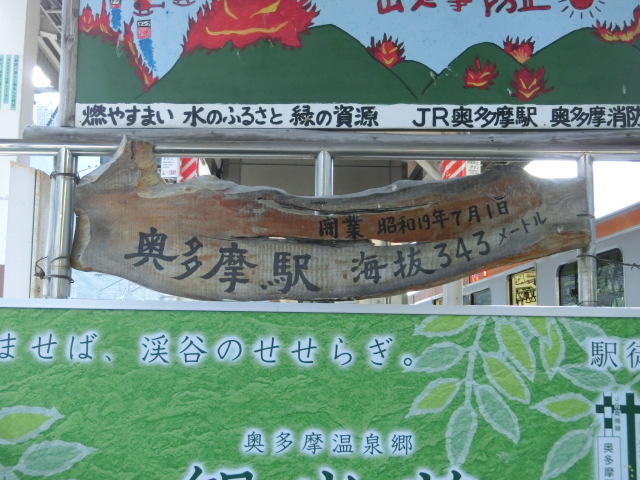 山火事防止
燃やすまい 水のふるさと 緑の資源 JR奥多摩駅 奥多摩消防
開業 昭和19年7月1日
奥多摩駅 海抜343メートル
ませば、渓谷のせせらぎ。
駅徒
奥多摩温泉郷
奥多摩